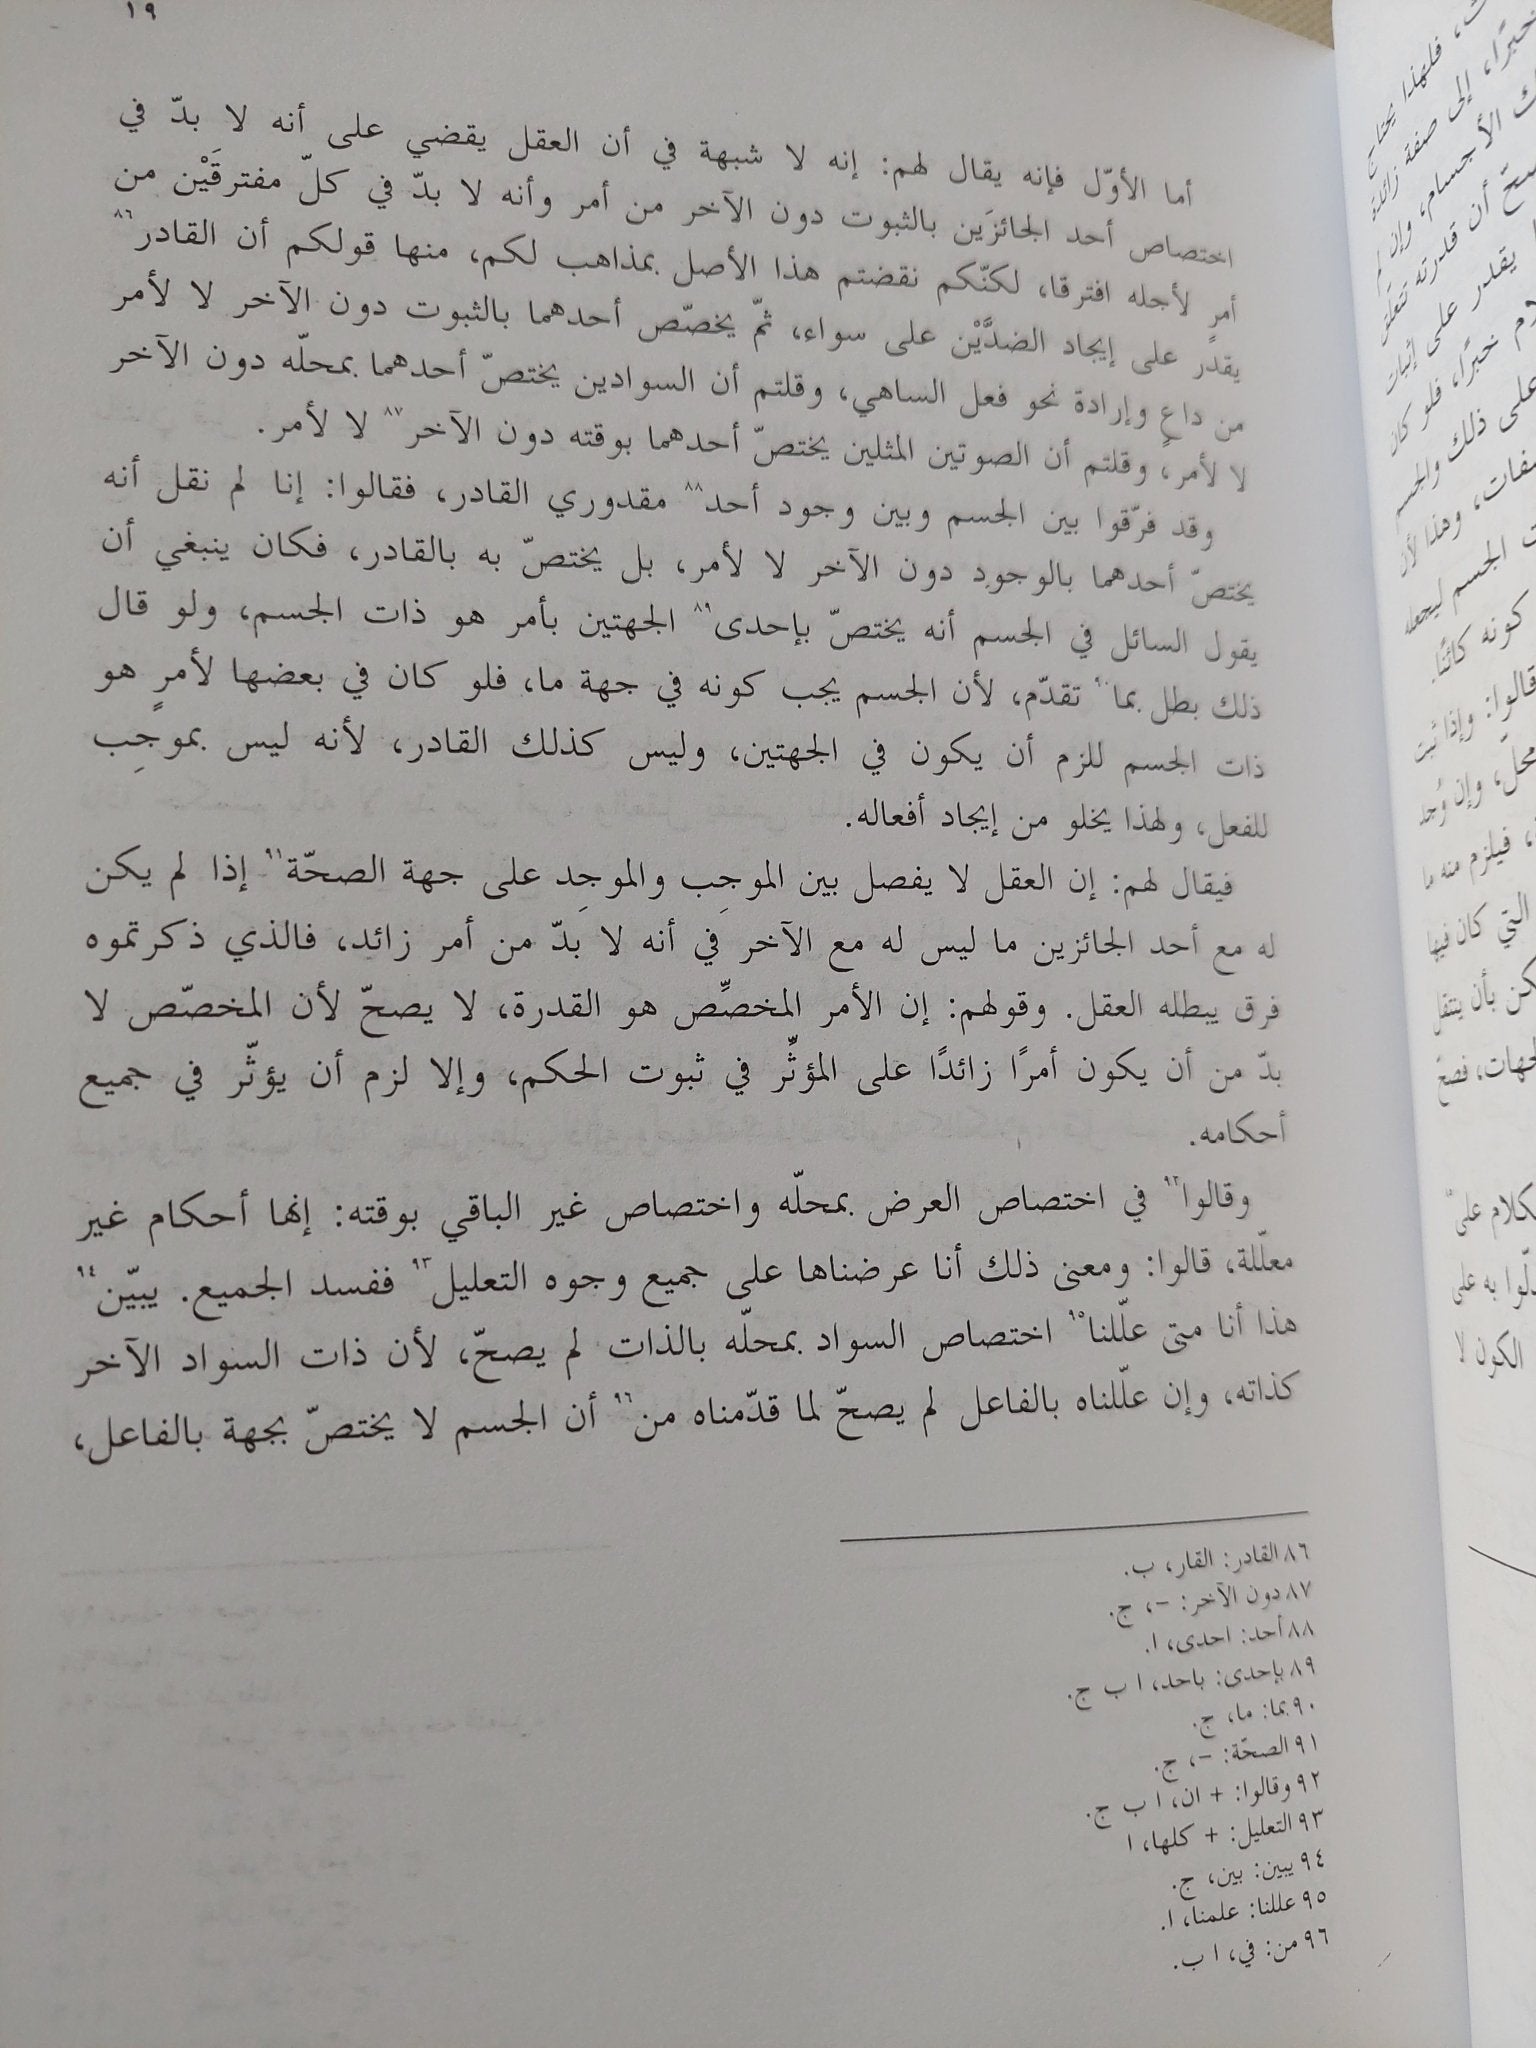 ١٩
أما الأوّل فإنه يقال لهم: إنه لا شبهة في أن العقل يقضي على أنه لا بدّ في
اختصاص أحد الجائزَين بالثبوت دون الآخر من أمر وأنه لا بدّ في كلّ مفترقَيْن من
أمرٍ لأجله افترقا، لكنّكم نقضتم هذا الأصل بمذاهب لكم، منها قولكم أن القادر٨٦
يقدر على إيجاد الضدَّيْن على سواء، ثمّ يخصّص أحدهما بالثبوت دون الآخر لا لأمر
من داعٍ وإرادة نحو فعل الساهي، وقلتم أن السوادين يختصّ أحدهما بمحلّه دون الآخر
لا لأمر، وقلتم أن الصوتين المثلين يختصّ أحدهما بوقته دون الآخر٨٧ لا لأمر.
وقد فرّقوا بين الجسم وبين وجود أحد٨٨ مقدوري القادر، فقالوا: إنا لم نقل أنه
يختصّ أحدهما بالوجود دون الآخر لا لأمر، بل يختصّ به بالقادر، فكان ينبغي أن
يقول السائل في الجسم أنه يختصّ بإحدى٨٩ الجهتين بأمر هو ذات الجسم، ولو قال
ذلك بطل بما٩٠ تقدّم، لأن الجسم يجب كونه في جهة ما، فلو كان في بعضها لأمرٍ هو
ذات الجسم للزم أن يكون في الجهتين، وليس كذلك القادر، لأنه ليس بموجِب
للفعل، ولهذا يخلو من إيجاد أفعاله.
فيقال لهم: إن العقل لا يفصل بين الموجِب والموجِد على جهة الصحّة٩١ إذا لم يكن
له مع أحد الجائزين ما ليس له مع الآخر في أنه لا بدّ من أمر زائد، فالذي ذكرتموه
فرق يبطله العقل. وقولهم: إن الأمر المخصِّص هو القدرة، لا يصحّ لأن المخصّص لا
بدّ من أن يكون أمرًا زائدًا على المؤثِّر في ثبوت الحكم، وإلا لزم أن يؤثّر في جميع
أحكامه.
وقالوا٩٢ في اختصاص العرض بمحلّه واختصاص غير الباقي بوقته: إنها أحكام غير
معلّلة، قالوا: ومعنى ذلك أنا عرضناها على جميع وجوه التعليل٩٣ ففسد الجميع. يبيّن٩٤
هذا أنا متى علّلنا٩٥ اختصاص السواد بمحلّه بالذات لم يصحّ، لأن ذات السواد الآخر
كذاته، وإن علّلناه بالفاعل لم يصحّ لما قدّمناه من٩٦ أن الجسم لا يختصّ بجهة بالفاعل،
٨٦ القادر: القار، ب.
٨٧ دون الآخر: –، ج.
٨٨ أحد: احدى، ا.
٨٩ بإحدى: باحد، ا ب ج.
٩٠ بما: ما، ج.
٩١ الصحّة: –، ج.
٩٢ وقالوا: + ان، ا ب ج.
٩٣ التعليل: + كلها، ا
٩٤ يبين: بين، ج.
٩٥ عللنا: علمنا، ا.
٩٦ من: في، ا ب.
فلهذا يحتاج
خبرًا، إلى صفة زائدة
الأجسام، وإن لم
أن قدرته تتعلّق
يقدر على إثبات
خبرًا، فلو كان
على ذلك والجسم
وهذا لأن
الجسم ليجعله
كونه كائنًا.
قالوا: وإذا ثبت
محلّ، وإن وُجد
فيلزم منه ما
التي كان فيها
بأن ينتقل
فصحّ
على
به على
الكون لا